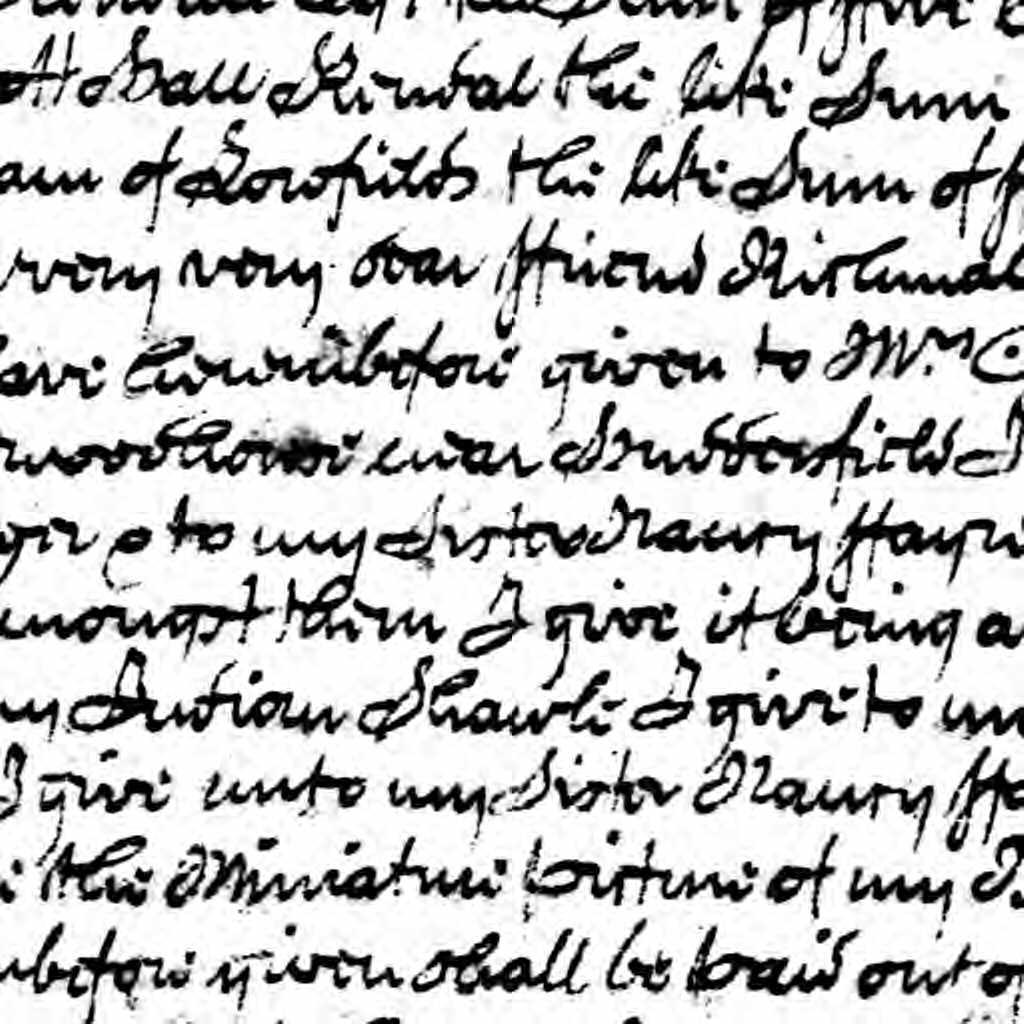 Sum of ffive
Hall Kendal the like Sum
am of Lowfields the like Sum of f
very very dear ffriend Richmal
have hereinbefore given to Mrs. C
woodhouse near Huddersfield I
ger & to my Sister Nancy Hay
amongst them I give it being a
my Indian Shawls I give to my
I give unto my Sister Nancy Ha
the Miniature picture of my
before given shall be paid out of